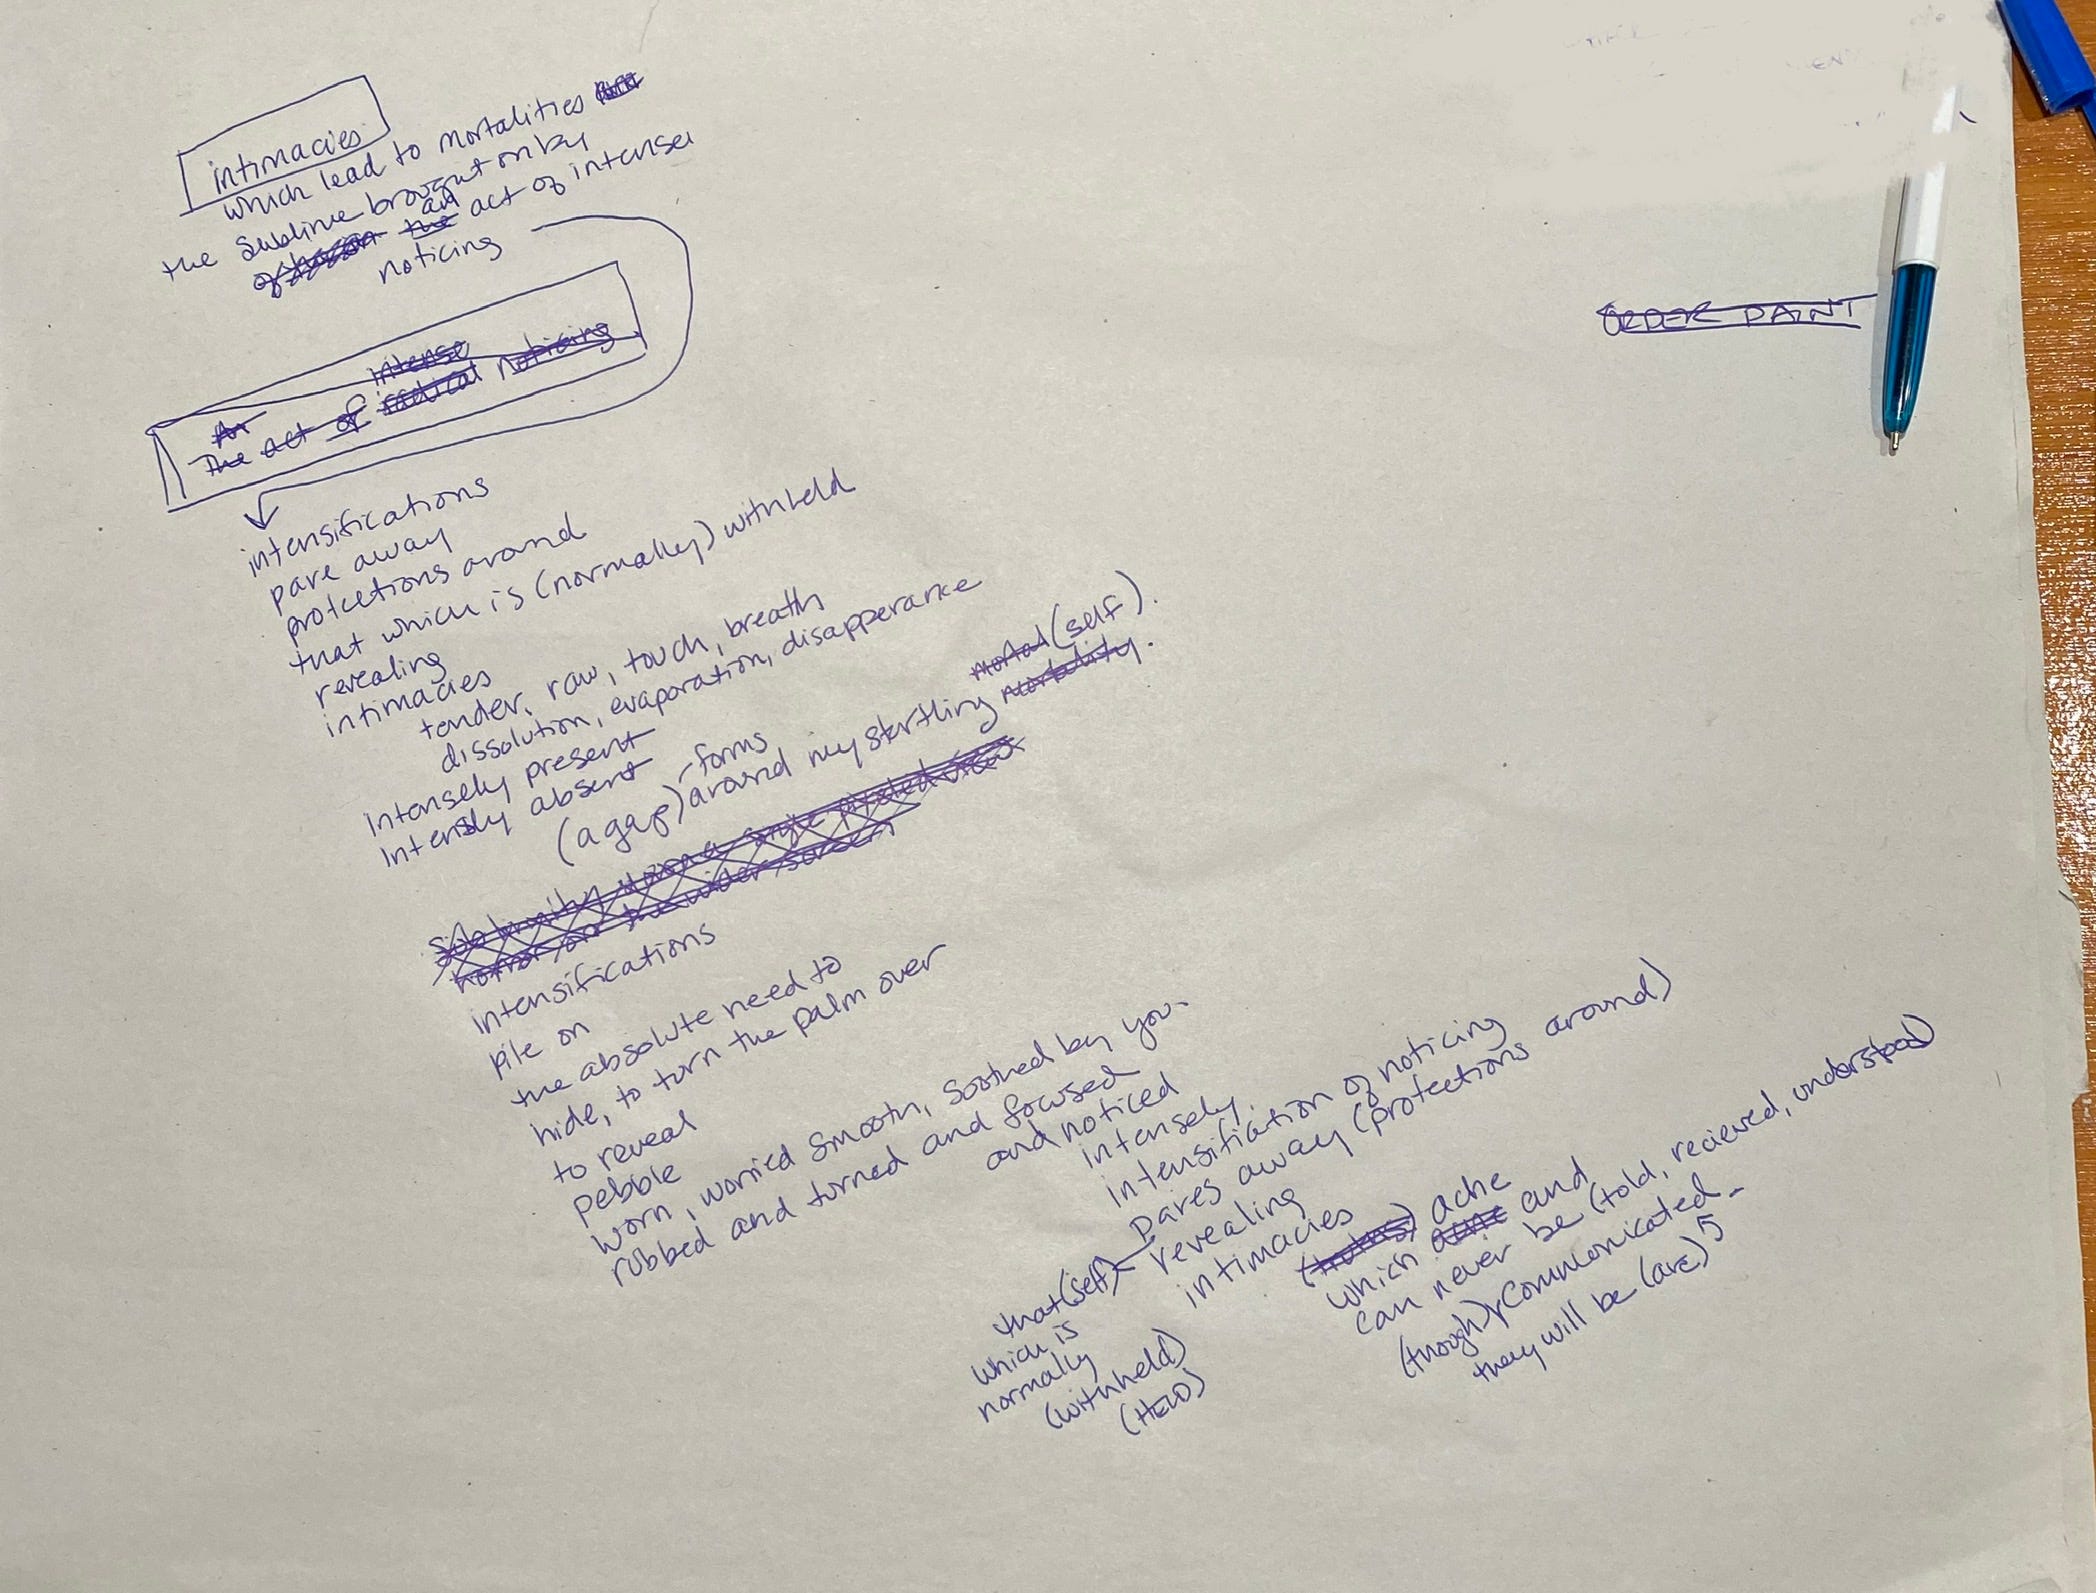 intimacies
which lead to mortalities
the sublime brought on by
an
the act of intense
noticing
intense
An
The act of radical noticing
intensifications
pare away
protections around
that which is (normally) withheld
revealing
intimacies
tender, raw, touch, breath
dissolution, evaporation, disapperance
intensely present
intensly absent
forms
(a gap) around my startling mortality.
mortal (self).
horror on the wider screen
intensifications
pile on
the absolute need to
hide, to turn the palm over
to reveal
pebble
worn, worried smooth, soothed by you.
rubbed and turned and focused
and noticed
intensely.
intensifiation of noticing
pares away (protections around)
that (self)
which is
normally
(withheld)
(HELD)
revealing
intimacies
ache
which and
can never be (told, recieved, understood)
(though) communicated
they will be (are)
ORDER PAINT